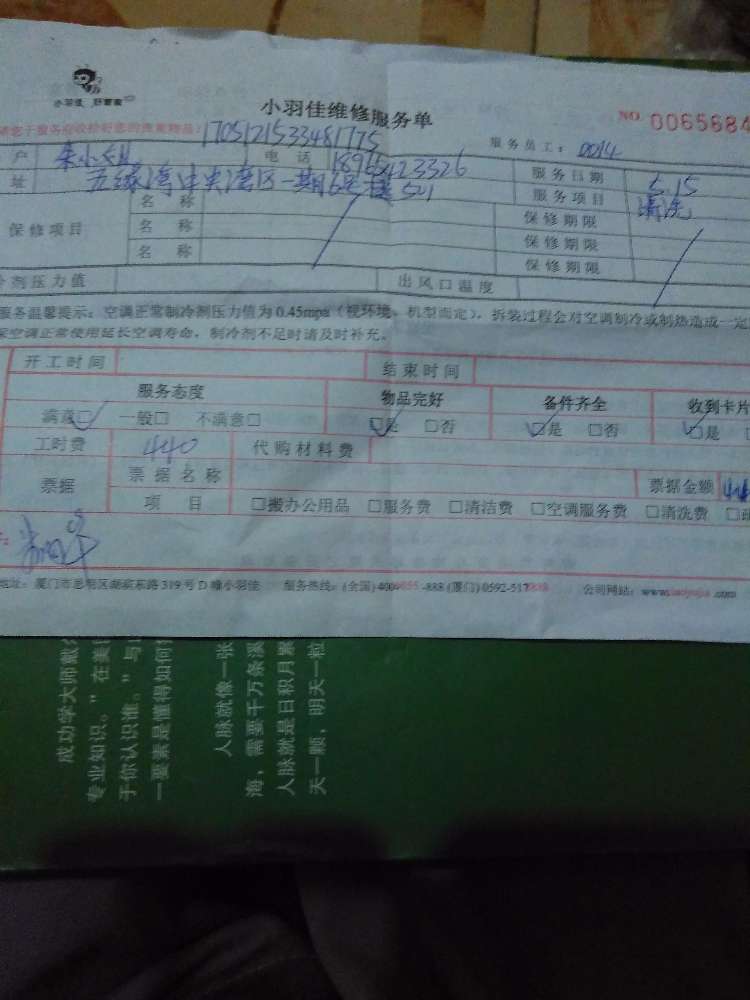 小羽佳 好管家
小羽佳维修服务单
NO. 0065684
1705121533481775
服务员工： 0014
户 朱小姐 电话 服务日期 5.15
址 五缘湾中央湾区一期6号楼521 服务项目 清洗
名称 保修期限
保修项目 名称 保修期限
名称 保修期限
冷剂压力值 出风口温度
服务温馨提示：空调正常制冷剂压力值为0.45mpa（视环境、机型而定），拆装过程会对空调制冷或制热造成一定
空调正常使用延长空调寿命，制冷剂不足时请及时补充。
开工时间 结束时间
服务态度 物品完好 备件齐全 收到卡片
满意□ 一般□ 不满意□ □是 □否 □是 □否 □是
工时费 440 代购材料费
票据 票据名称 票据金额 44
项目 □搬办公用品 □服务费 □清洁费 □空调服务费 □清洗费
地址：厦门市思明区湖滨东路319号D幢小羽佳 服务热线：(全国)4008855-888 (厦门)0592-5178888 公司网站：www.xiaoyujia.com
成功学大师戴尔
专业知识。”在美国
于你认识谁。”与
一要素是懂得如何
人脉就像一张
海，需要千万条溪
人脉就是日积月累
天一顺，明天一粒